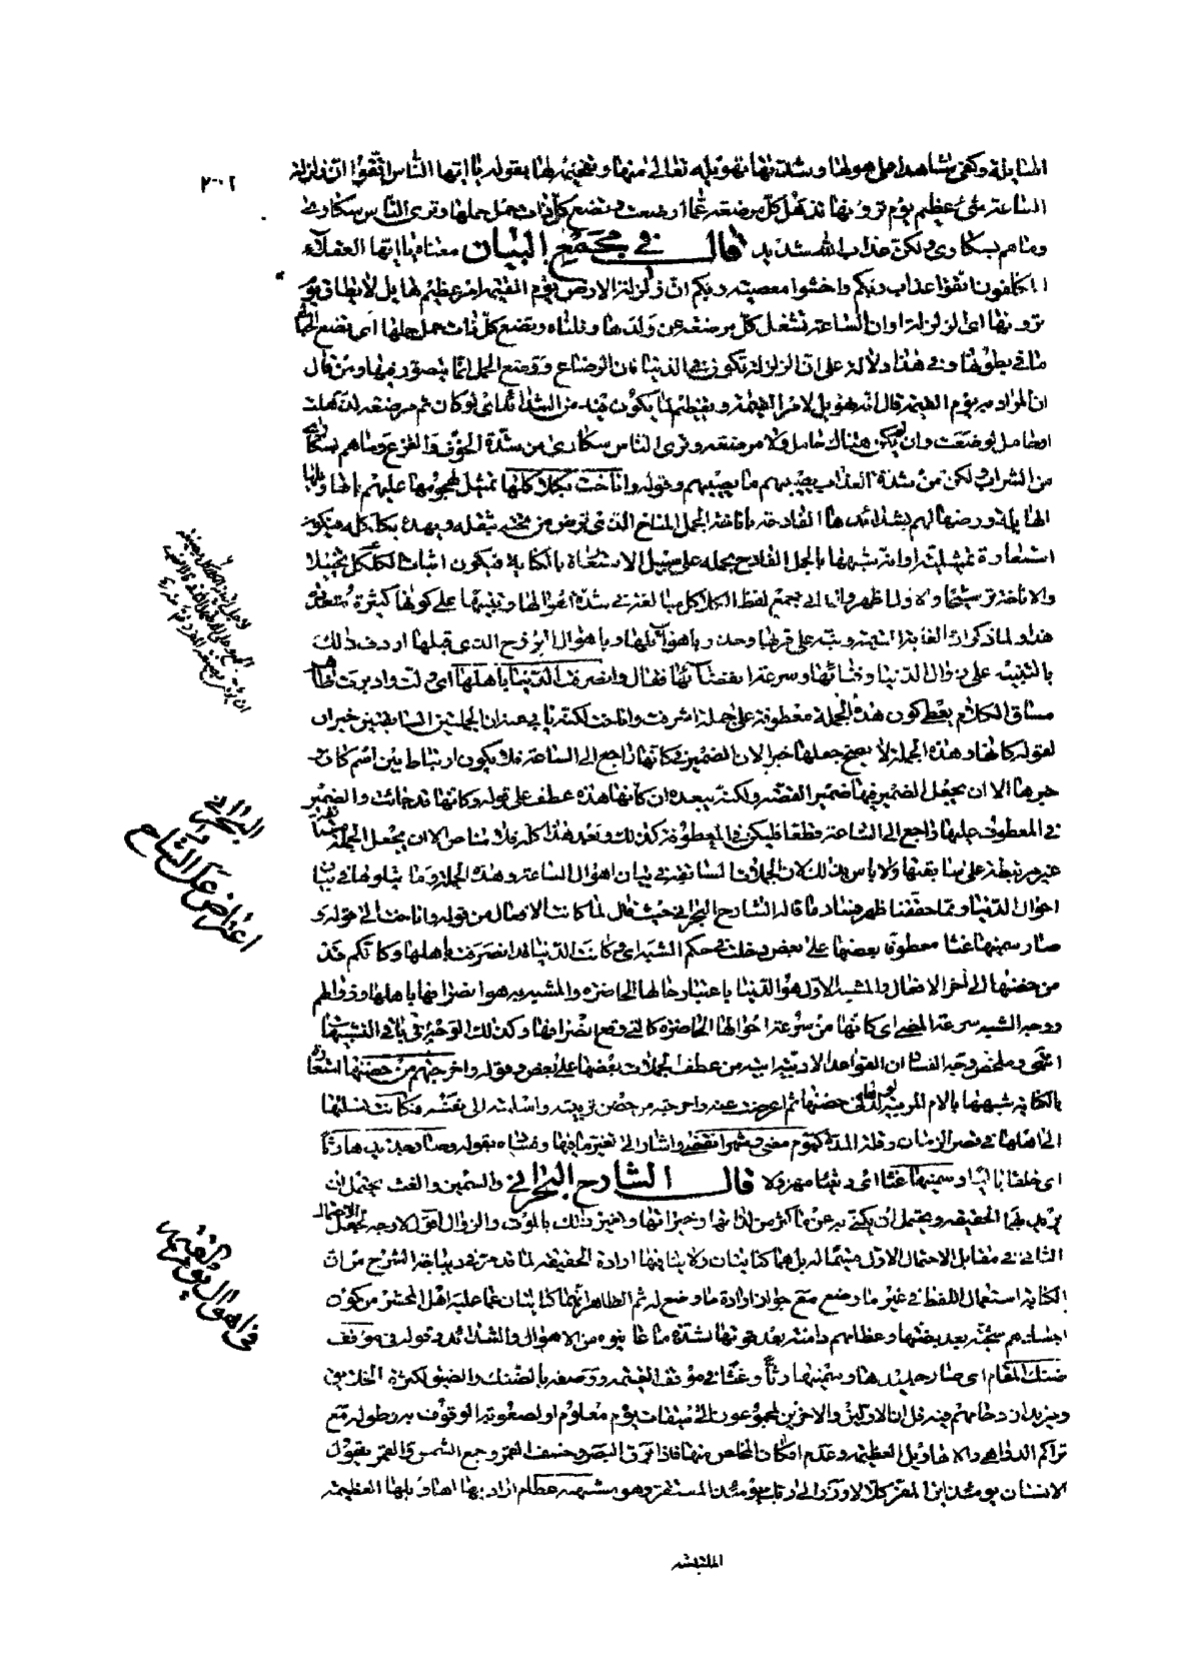 ٢٠٠٢
الهائلة وكفى شاهدا على هولها وشدتها تهويله تعالى منها وتخويفه لها بقوله يا ايها الناس اتقوا ان زلزلة
الساعة شئ عظيم يوم ترونها تذهل كل مرضعة عما ارضعت وتضع كل ذات حمل حملها وترى الناس سكارى
وما هم بسكارى ولكن عذاب الله شديد قال في مجمع البيان معناه يا ايها العقلاء
المكلفون اتقوا عذاب ربكم واخشوا معصية ربكم ان زلزلة الارض يوم القيمة امر عظيم هايل لا يطاق يوم
ترونها اى الزلزلة او ان الساعة تشغل كل مرضعة عن ولدها وتنساه وتضع كل ذات حمل حملها اى تضع الحبالى
ما في بطونها وفى هذا دلالة على ان الزلزلة تكون فى الدنيا فان الرضاع ووضع الحمل انما يتصور فيها ومن قال
ان المراد به يوم القيمة قال انه تهويل لامر القيمة وتعظيم لما يكون فيه من الشدائد اى لو كان ثم مرضعة لذهلت
او حامل لوضعت وان لم يكن هناك حامل ولا مرضعة وترى الناس سكارى من شدة الخوف والفزع وما هم بسكارى
من الشراب ولكن من شدة العذاب يصيبهم ما يصيبهم وقوله واناخت بكلاكلها تمثيل لهجومها عليهم باهاويلها
الهايلة ورضها لهم بشدائدها الفادحة باناخة الجمل المناخ الذى يرض من تحته بثقله ويهده بكلكله فيكون
استعارة تمثيلية او انه شبهها بالجمل الفادح بحمله على سبيل الاستعارة بالكناية فيكون اثبات الكلكل تخييلا
والاناخة ترشيحا والاول اظهر وانما اتى بجمع لفظ الكلاكل مبالغة فى شدة اهوالها وتنبيها على كونها كثيرة متعددة
هذا ولما ذكر ان الغاية الساعة ونبه على قربها وحذر باهوالها وباهوال البرزخ الذى قبلها اردف ذلك
بالتنبيه على زوال الدنيا وفنائها وسرعة انقضائها فقال وانصرفت الدنيا باهلها اى ولت وادبرت ظاهر
مساق الكلام يعطى كون هذه الجملة معطوفة على جملة اشرفت واناخت لكنه يابى عنه ان الجملتين السابقتين خبران
لقوله كانها وهذه الجملة لا يصح جعلها خبرا لان الضمير فى كانها راجع الى الساعة فلا يكون ارتباط بين اسم كان
خبرها الا ان يجعل الضمير فيها ضمير القصة ولكنه يبعده ان كانها هذه عطف على قوله وكانها قد خانت والضمير
فى المعطوف عليها راجع الى الساعة قطعا فليكن فى المعطوفة كذلك وبعد هذا كله فلا مناص الا ان يجعل الجملة
غير مرتبطة على سابقتها ولا باس بذلك لان الجملات السابقة فى بيان اهوال الساعة وهذه الجملة وما يتلوها فى بيان
احوال الدنيا ومما حققنا ظهر فساد ما قاله الشارح البحرانى حيث قال لما كانت الافعال من قوله واناخت الى قوله و
صار سمينها غثا معطوفا بعضها على بعض دخلت فى حكم الشبه اى وكانت الدنيا قد انصرفت باهلها وكانكم قد
من حضنها الى آخر الافعال والمشبه الاول هو الدنيا باعتبار حالها الحاضرة والمشبه به هو انصرافها باهلها وزوالهم
ووجه الشبه سرعة المضى اى كانها من سرعة احوالها الحاضرة كالتى وقع انصرافها وكذلك الوجه فى باقى التشبيهات
انتهى وملخص وجه الفساد ان القواعد الادبية ابية من عطف الجملات بعضها على بعض وقوله واخرجتهم من حضنها استعارة
بالكناية شبهها بالام المربية
الى اهلها فى قصر الزمان وقلة المدة كيوم مضى وشهر انقضى واشار الى تغير ما فيها وفسائه بقوله وصار جديدها رثا
اى خلقا باليا وسمينها غثا اى دقيقا مهزولا قال الشارح البحرانى والسمين والغث يحتمل ان
يريد بهما الحقيقة ويحتمل ان يكنى به عن ما كثر من لذاتها وخيراتها وتغير ذلك بالموت والزوال اقول لا وجه لجعل الاحتمال
الثانى فى مقابل الاحتمال الاول قسيما له بل هما كنايتان ولا ينافيها ارادة الحقيقة لما قد مر فى ديباجة الشرح من ان
الكناية استعمال اللفظ فى غير ما وضع مع جواز ارادة ما وضع له ثم الظاهر انهما كنايتان عما عليه اهل المحشر من كون
اجسادهم شحبة بعد بضتها وعظامهم واهنة بعد قوتها لشدة ما عاينوه من الاهوال والشدائد وقوله فى موقف
ضنك المقام اى صار جديدها وسمينها رثا وغثا فى موقف القيمة ووصفه بالضنك والضيق لكثرة الخلايق
ومزيد ازدحامهم فيه قل ان الاولين والاخرين لمجموعون الى ميقات يوم معلوم او لصعوبة الوقوف به وطوله مع
تراكم الدواهى والاهاويل العظيمة وعدم امكان المخلص منها فاذا برق البصر وخسف القمر وجمع الشمس والقمر يقول
الانسان يومئذ اين المفر كلا لا وزر الى ربك يومئذ المستقر وهو مشتبهة عظام اراد بها اهاويلها العظيمة
البحرانى
اعتراض على الشارح
فى اهوال يوم القيمة
الملتبسة